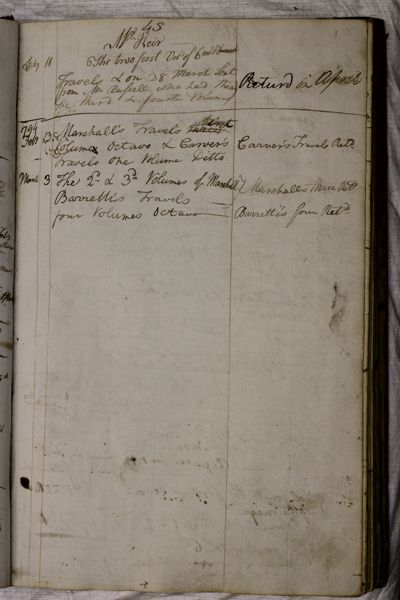 45
Mr. Keir
Feby 11 The two first Vols of Cox's
Travels & on 28 March Sent
from Mr. Russell who had them
the third & fourth Volumes
Returd in April
1794
Febr 13 Marshall's Travels first
Volume Octavo & Carver's
Travels one Volume Ditto
Carver's Travels Retd.
March 3 The 2d. & 3d Volumes of Marshall's
Barretti's Travels
four Volumes Octavo
Marshall's three Retd
Barretti's four Retd.